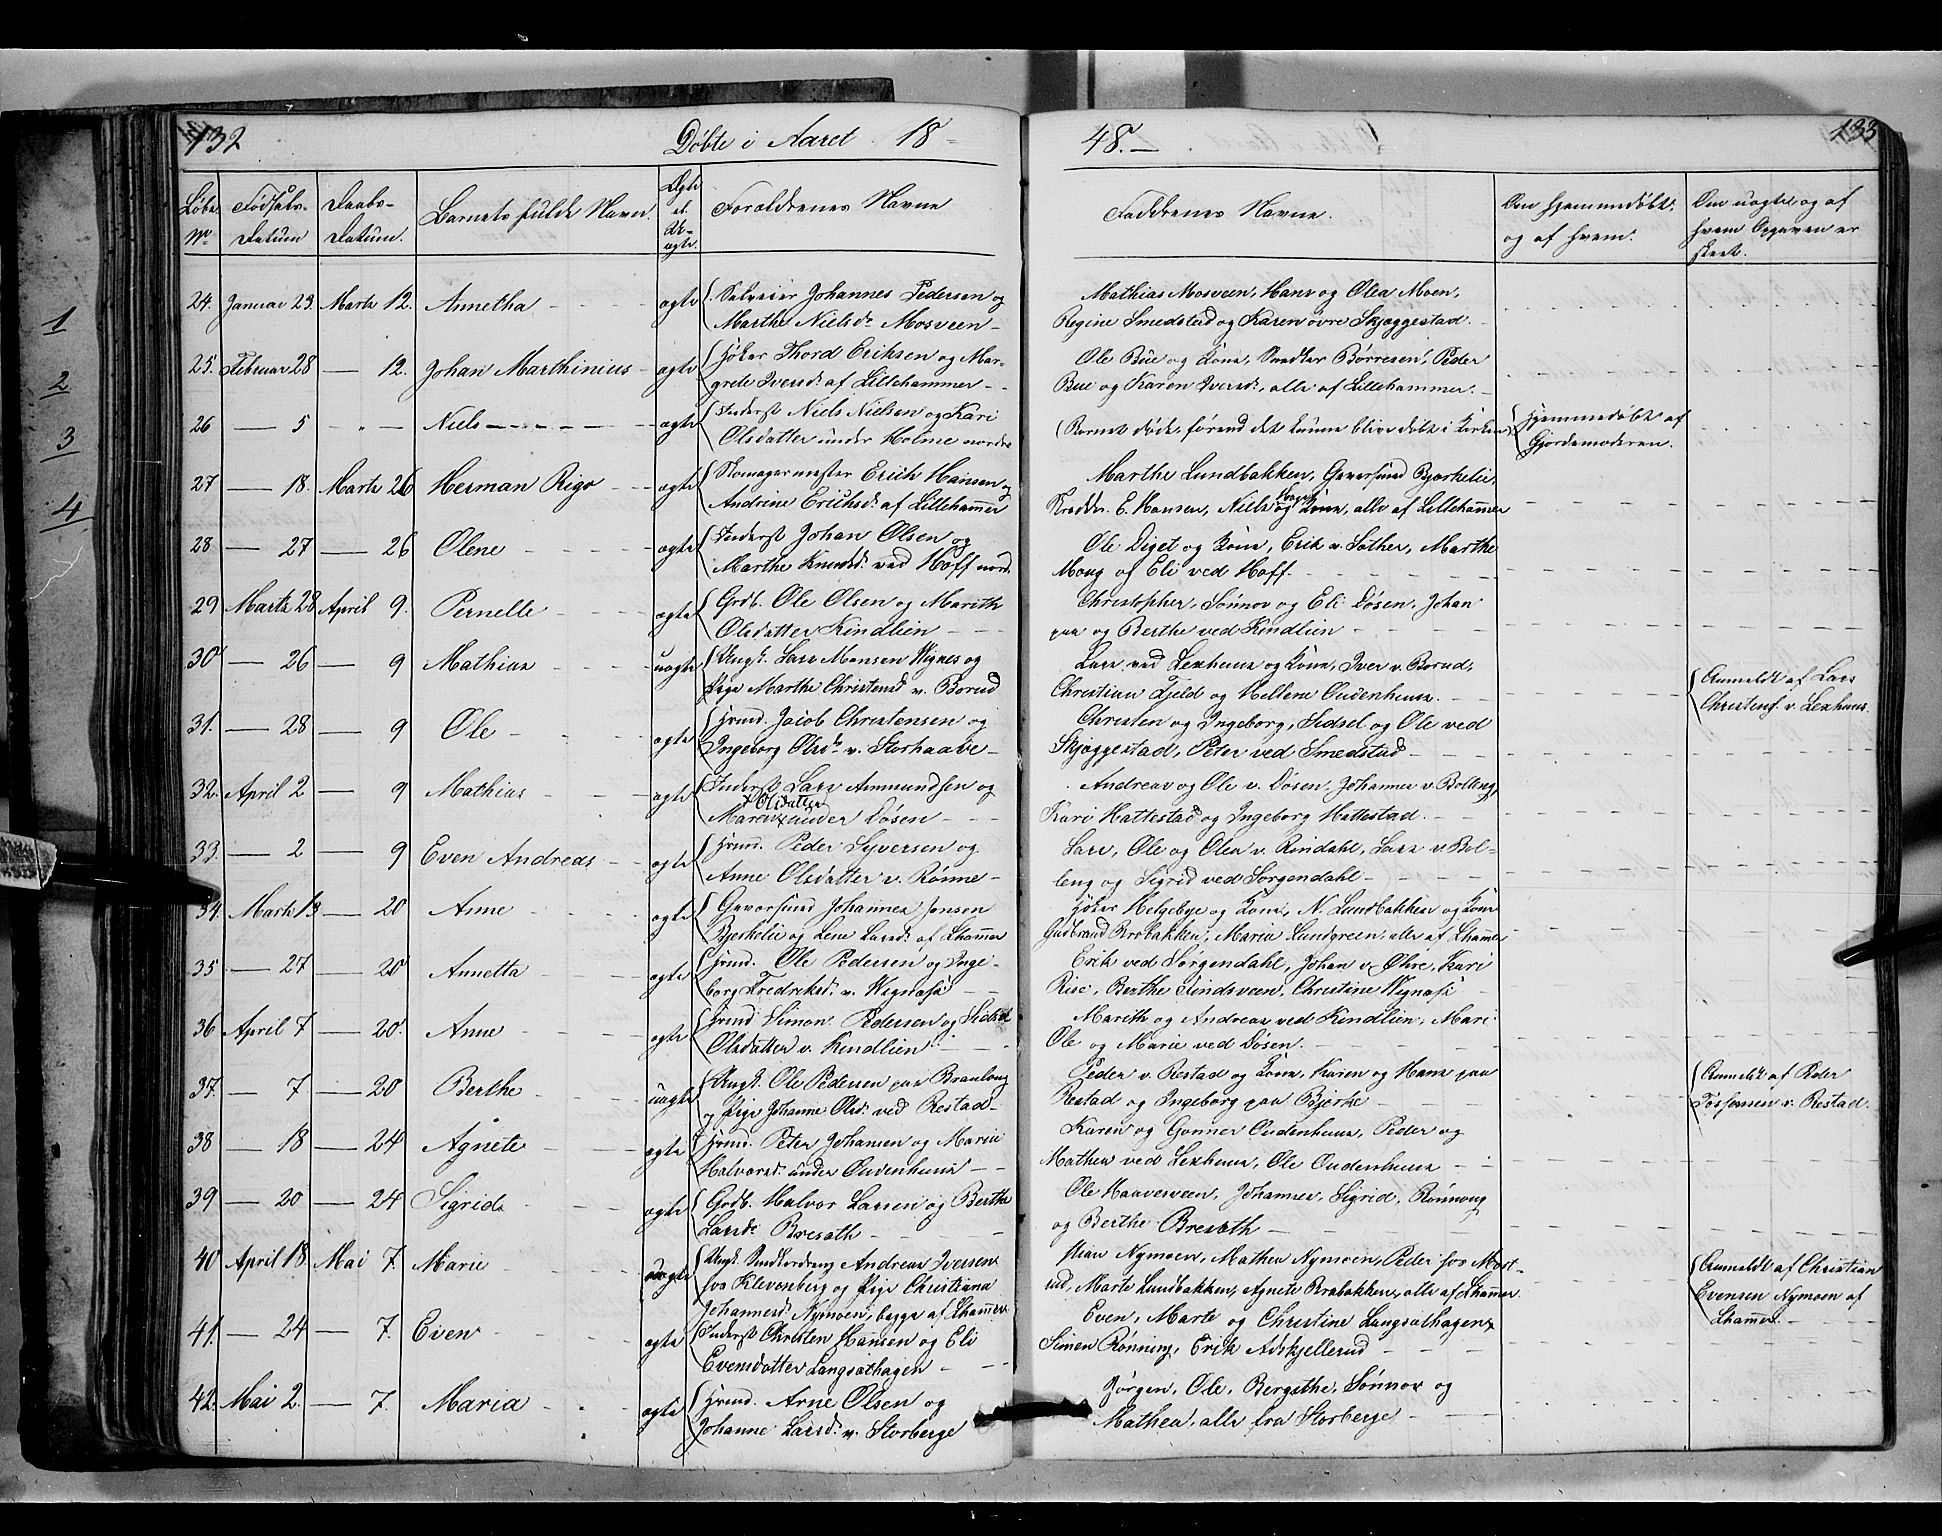 132
Døbte i Aaret 18
Løbe No
Fødsels-Datum
Daabs-Datum.
Barnets fulde Navn.
Ægte el. Uægte.
Forældrenes Navne
24. Januar 23. Marts 12. Annetha ægte Selveier Johannes Pedersen og
Marthe Nielsdr Mosveen
25. Februar 28 — 12. Johan Marthinius ægte Høker Thord Eriksen og Mar-
grete Iversd. af Lillehammer
26 — 5 — " — Niels ægte Inderst Niels Nielsen og Kari
Olsdatter under Holme nordre
27 — 18. Marts 26 Herman Rigo ægte Skomagermester Erich Hansen og
Andrine Erichsd. af Lillehammer
28 — 27 — 26 Olene ægte Inderst Johan Olsen og
Marthe Knudsd. ved Hoff nord.
29 Marts 28 April 9. Pernelle ægte Grdb. Ole Olsen og Marith
Olsdatter Kindlien
30 — 26 — 9 Mathias uægte Ungk. Lars Monsen Vignes og
Pige Marthe Christensd. v. Borud
31. — 28 — 9 Ole ægte Hmd. Jacob Christensen og
Ingeborg Olsdr v. Storhaave
32. April 2 — 9 Mathias ægte Inderst Lars Ammundsen og
Maren x Olsdatter x under Døsen
33. — 2 — 9 Even Andreas ægte Hmd. Peder Syversen og
Anne Olsdatter v. Rønne
34. Marts 13 — 20 Anne ægte Gevorsund Johannes Jensen
Bjerkelie og Lene Larsd. af Lhammer
35 — 27 — 20 Annetta ægte Hmd. Ole Pedersen og Inge-
borg Fredriksd. v. Wignæsje
36 April 7 — 20. Anne ægte Hmd Simon Pedersen og Sidsel
Olsdatter v. Kindlien
37. — 7 — 20 Berthe uægte Ungk. Ole Pedersen paa
og Pige Johanne Olsd. ved Restad
38 — 18 — 24 Agnete ægte Hmd. Peter Johansen og Marie
Halvorsd. under Oudenhuus
39 — 20 — 24 Sigrid ægte Grdb. Halvor Larsen og Berthe
Larsdr Bresath
40 April 18 Mai 7 Marie uægte Ungk. Andreas Iversen
fra Klevenberg og Pige Christiana
Johannesd. Nymoen, begge af Lhammer
41. — 24 — 7. Even ægte Inderst Christen Hansen og Eli
Evensdatter Langsæthagen
42. Mai 2. — 7. Maria ægte Hmd. Arne Olsen og
Johanne Larsd. v. Storberge
48.
133
Faddrenes Navne.
Om hjemmedøbt,
og af hvem.
Om uægte og af
hvem Opgaven er
skeet.
Mathias Mosveen, Hans og Olea Moen,
Regine Smedsted og Karen øvre Skjæggestad.
Ole Bue og Kone, Snedker Børresen, Peder
Bue og Karen Iversd., alle af Lillehammer.
(Barnet døde, førend det kunne blive døbt i Kirken) Hjemmedøbt af
Gjordemoderen.
Marthe Lundbakken, Gevorsund Bjerkelie,
Skrædder E. Hansen, Niels Hage og Kone, alle af Lillehammer
Ole Diget og Kone, Erik v. Sæther, Marthe
Moug og Eli ved Hoff.
Christopher, Sønnov og Eli Døsen, Johan
paa og Berthe ved Kindlien
Lars ved Lexhuus og Kone, Iver v. Borud,
Christian Fjeld og Hellene Oudenhuus. Anmeldt af Lars
Christens. v. Lexhuus.
Christen og Ingeborg, Sidsel og Ole ved
Skjæggestad, Peter ved Smedstad
Andreas og Ole v. Døsen, Johannes v. Bolleng,
Kari Hattestad og Ingeborg Hattestad.
Lars, Ole og Olea v. Rindahl, Lars v. Bol-
leng og Sigrid ved Sørgendahl.
Høker Helgebye og Kone, N. Lundbakken og Kone
Gudbrand Brobakken, Maria Lundgreen, alle af Lhammer
Erik ved Sørgendahl, Johan v. Øhre, Kari
Rise, Berthe Rindsveen, Christine Wignæsje
Marith og Andreas ved Kindlien, Mari
Ole og Marie ved Døsen.
Peder v. Restad og Kone, Karen og Hans paa
Restad og Ingeborg paa Bjerke Anmeldt af Peder
Tostensen v. Restad.
Karen og Gunner Oudenhuus, Peder og
Mathea ved Lexhuus, Ole Oudenhuus
Ole Haavesveen, Johannes, Sigrid, Rønnoug
og Berthe Bresæth
Stian Nymoen, Mathea Nymoen, Peder fra Most-
rud, Marte Lundbakken, Agnete Brobakken, alle af Lhammer. Anmeldt af Christian
Evensen Nymoen af
Lhammer.
Even, Marte og Christine Langsæthagen
Simen Rønning, Erik Adskjellerud
Jørgen, Ole, Bergithe, Sønnov og
Mathea, alle fra Storberge
1
2
3
4